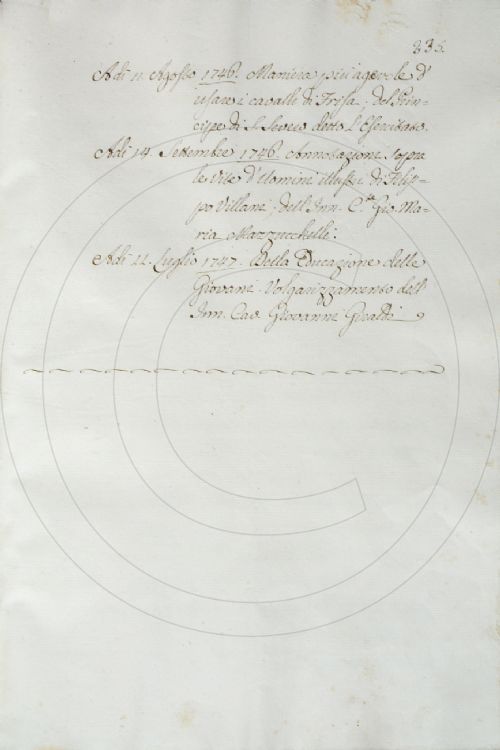 335.
Adi 11. Agosto 1746. Maniera piu' agevole d'
usare i cavalli di Frisa; del Prin-
cipe di S. Severo detto L'Esercitato.
Adi 14. Settembre 1746. Annotazione sopra
le Vite d'Uomini illustri di Filip-
po Villani; dell'Inn. C.te Gio. Ma-
ria Mazzuchelli.
Adi 22. Luglio 1747. Della Educazione delle
Giovani. Volgarizzamento dell'
Inn. Cav. Giovanni Giraldi.